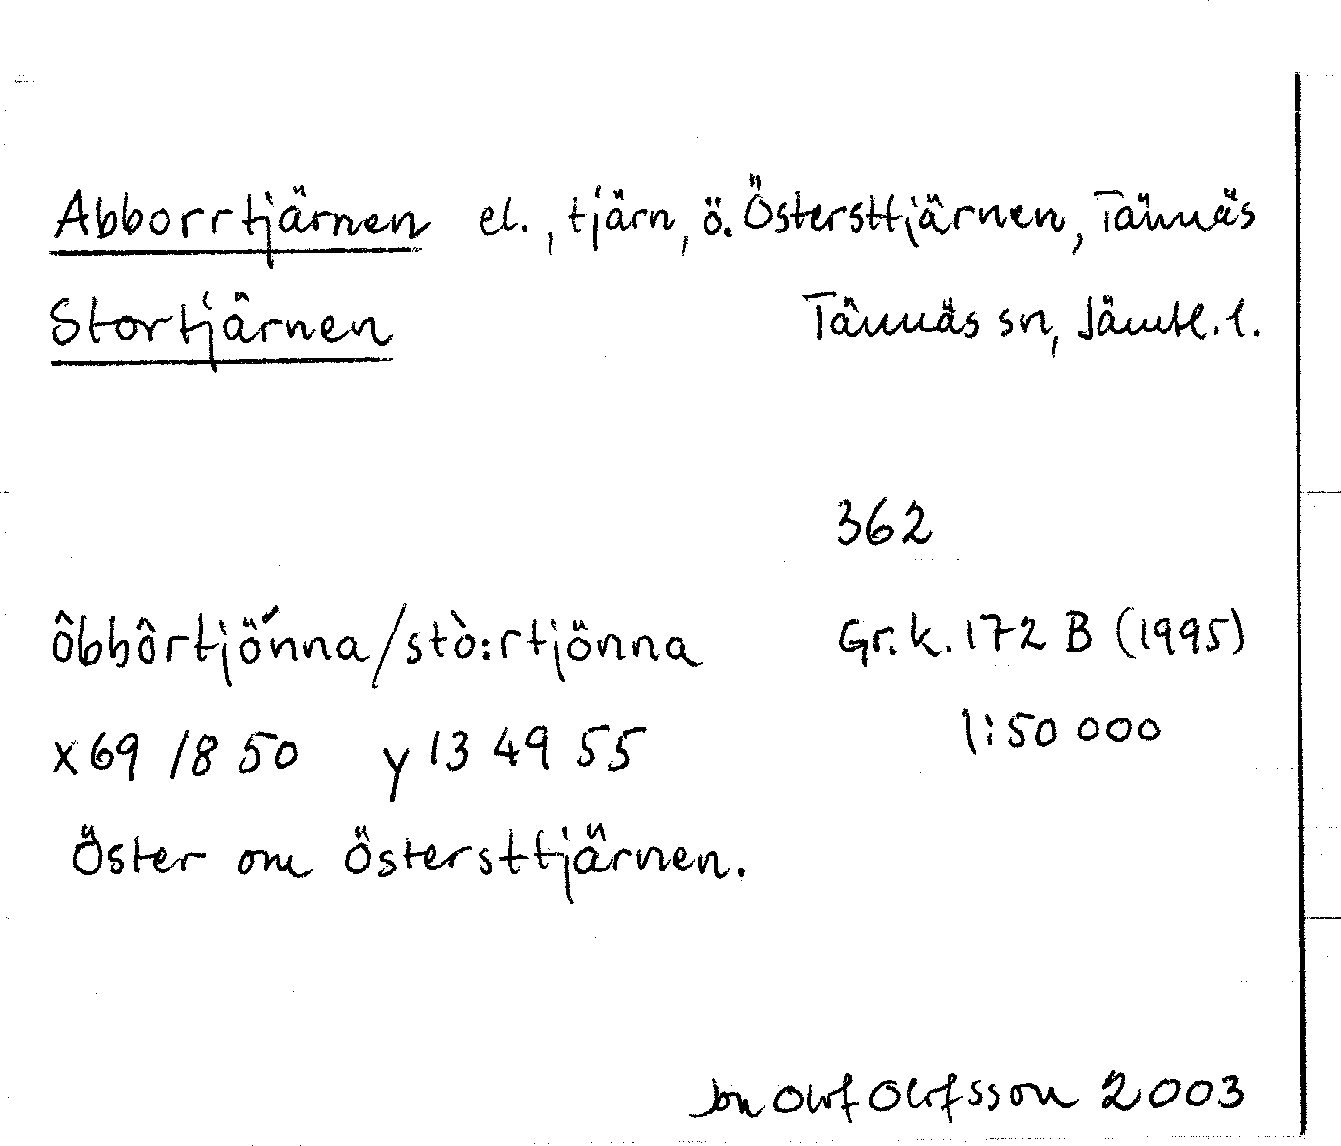 Abborrtjärnen el., tjärn, ö. Östersttjärnen, Tännäs
Stortjärnen Tännäs sn, Jämtl. l.
362
ôbbôrtjö́nna/stò:rtjönna Gr.k. 172 B (1995)
x 69 18 50 y 13 49 55 1:50 000
Öster om Östersttjärnen.
Jon Olof Olofsson 2003